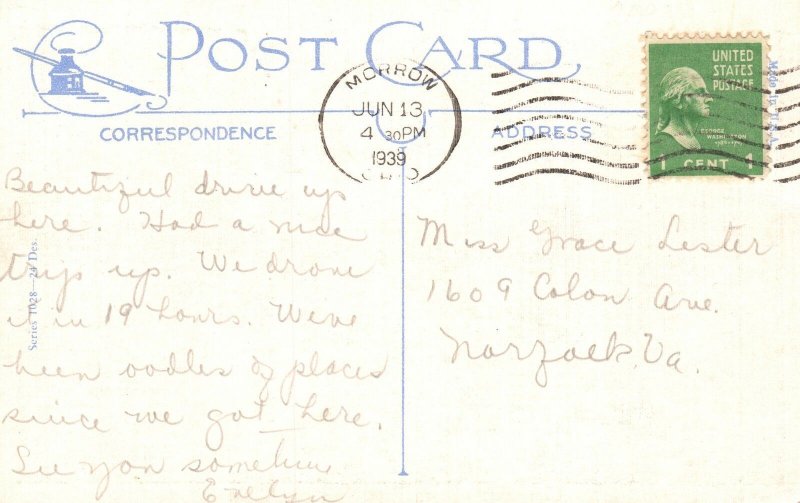 POST CARD
MORROW
JUN 13
4 30PM
1939
OHIO
UNITED
STATES
POSTAGE
GEORGE
WASHINGTON
1789-1797
1 CENT 1
Made in U.S.A.
CORRESPONDENCE
ADDRESS
Beautiful drive up
here. Had a nice
trip up. We drove
it in 19 hours. Weve
been oodles of places
since we got here.
See you sometime
Evelyn
Series 1028—24 Des.
Miss Grace Lester
1609 Colon Ave.
Norfolk, Va.